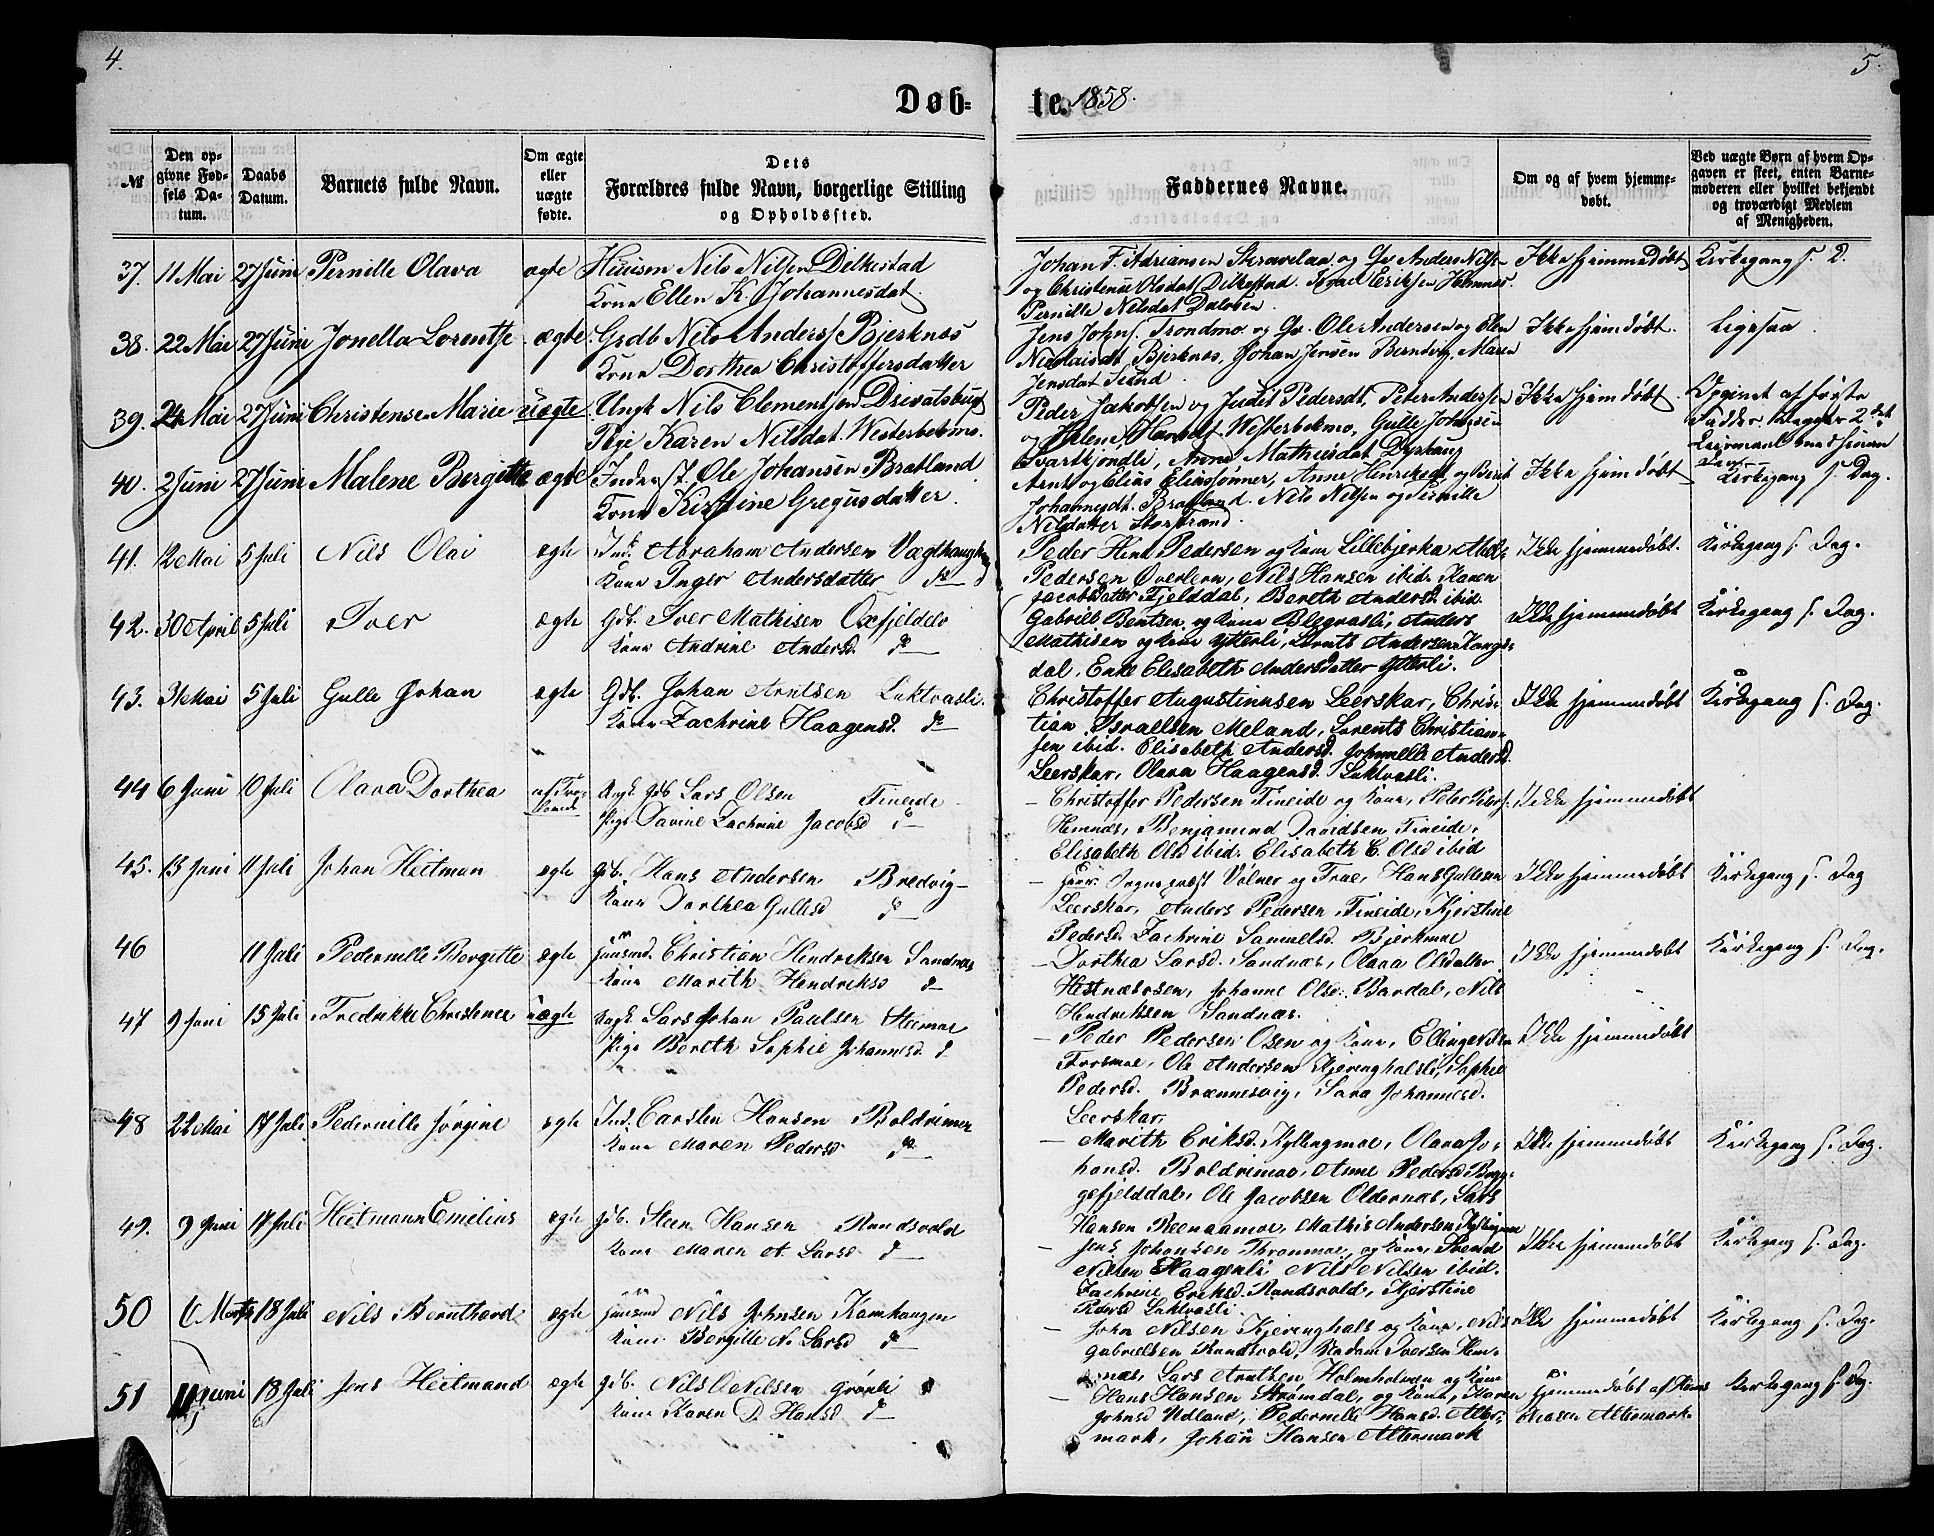 4.
5.
Døb-
te. 1858.
№
Den op-
givne Fød-
sels Da-
tum.
Daabs
Datum.
Barnets fulde Navn.
Om ægte
eller
uægte
fødte.
Dets
Forældres fulde Navn, borgerlige Stilling
og Opholdssted.
Faddernes Navne.
Om og af hvem hjemme-
døbt.
Ved uægte Børn af hvem Op-
gaven er skeet, enten Barne-
moderen eller hvilket bekjendt
og troværdigt Medlem
af Menigheden.
37. 11 Mai 27 Juni Pernille Olava ægte Huusm Nils Nilsen Dilkestad
Kone Ellen K. Johannesdat.
Johan F. Adriansen og Gv Anders Nils-
og Christense Olsdat Dilkestad. Israel Eriksen Hemnes.
Pernille Nilsdat Dalosen
Ikke hjemmedøbt Kirkegang s. D.
38. 22 Mai 27 Juni Jonella Lorentse ægte Grdb Nils Anders. Bjerknæs
Kone Dorthea Christoffersdatter
Jens Johns. Trondmo og Gv. Ole Andersen og Elen
Nicolaisdt Bjerknæs, Johan Jensen Berndvig, Maren
Jensdat Sund
Ikke hjemdøbt. Ligesaa
39. 24 Mai 27 Juni Christense Marie uægte Ungk Nils Clementsen
Pige Karen Nilsdat. Westerbotmo.
Peder Jakobsen og Judet Pedersdt, Peter Andersen
og Helene Hansdt Westerbotmo, Gulle Johansen
Svartkjondli, Anne Mathisdat Dyrhaug
Ikke hjemdøbt Opgivet af første
Fadder. Begges 2det
Leiermaal
40. 2 Juni 27 Juni Malene Bergitte ægte Inderst. Ole Johansen Bratland
Kone Kistine Gregusdatter
Arnt og Elias Eliassønner, Anne Henriksdt og Berit
Johannesdt. Bratland. Nils Nilsen og Pernille
Nilsdatter Storstrand.
Ikke hjemdøbt Kirkegang s. Dag.
41. 12 Mai 5 Juli Nils Olai ægte Ind. Abraham Andersen
Kone Inger Andersdatter do
Peder Hend Pedersen og Kone Lillebjerka
Pedersen Øverlern, Nils Hansen ibid. Karen
Jacobsdatter Fjelddal, Bereth Andersd. ibid.
Ikke hjemmedøbt. Kirkegang s. Dag.
42. 30 April 5 Juli Iver ægte Gdb. Iver Mathisen Oxfjeldelv
Kone Andrine Andersd. do
Gabriel Bentsen og Kone Blegvasli, Anders
Mathisen og Kone Ytterli, Lorents Andersen Kongs-
dal, Enke Elisabeth Andersdatter Ytterli.
Ikke hjemmedøbt Kirkegang s. Dag.
43. 31 Mai 5 Juli Gulle Johan ægte Gdb. Johan Arntsen Luktvasli
Kone Zachrine Haagensd. do
Christoffer Augustinusen Leerskar, Chris-
tian Israelsen Meland, Lorents Christian-
sen ibid. Elisabeth Andersd. Johnnelle Andersd.
Leerskar, Olava Haagensd. Luktvasli.
Ikke hjemmedøbt Kirkegang s. Dag.
44 6 Juni 10 Juli Olava Dorthea
Ungk Gdb Lars Olsen Fineide
Pige Davine Zachrine Jacobsd do
- Christoffer Pedersen Fineide og Kone, Peter Peters.
Hemnæs, Benjamind Davidsen Fineide,
Elisabeth Olsd ibid. Elisabeth C. Olsd ibid
Ikke hjemmedøbt
45. 13 Juni 11 Juli Johan Heitman ægte Gdb. Hans Andersen Bredvig
Kone Dorthea Gullesd do
- Sognepræst Volner og Frue, Hans Gullesen
Leerskar, Anders Pedersen Fineide, Kjerstine
Pedersd. Zachrine Samuelsd. Bjerkmoe
Ikke hjemmedøbt Kirkegang s. Dag
46 11 Juli Pedernille Bergitte ægte Huusmd. Christian Hendriksen Sandnæs
Kone Marith Hendriksd do
- Dorthea Larsd. Sandnæs, Olava Olsdatter
Hestnæsosen, Johanne Olsd. Bardal, Nils
Hendriksen Sandnæs.
Ikke hjemmedøbt Kirkegang s. Dag.
47 9 Juni 15 Juli Fredrikke Christence uægte Ungk Lars Johan Paulsen
Pige Bereth Sophie Johannesd. do
- Peder Pedersen Osen og Kone, Elling Nilsen
Forsmoe, Ole Andersen Kjeringhalsli, Sophie
Pedersd. Brænnesvig, Sara Johannesd.
Leerskar.
Ikke hjemmedøbt
48 22 Mai 17 Juli Pedernille Jørgine ægte Ind. Carsten Hansen Boldrimoe
Kone Maren Pedersd. do
- Marith Eriksd. Kyllingmoe, Olava Jo-
hansd. Boldrimoe, Anne Pedersd Bryg-
gefjelddal, Ole Jacobsen Oldernæs, Lars
Hansen Reenaamoe, Mathis Andersen Kyllingmoe
Ikke hjemmedøbt Kirkegang s. Dag.
49. 9 Juni 17 Juli Heitmann Emelius ægte Gdb. Steen Hansen Rundsvold
Kone Maren A. Larsd. do
- Jens Johansen Thronmoe, og Kone, Svend
Nilsen Haagenli Nils Nilsen ibid.
Zachrine Eriksd. Rundsvold, Kjerstine
Pedersd Luktvasli
Ikke hjemmedøbt Kirkegang s. Dag.
50 6 Marts 18 Juli Nils Bernthard ægte Huusmd Nils Johnsen Kamhaugen
Kone Bergitte N. Larsd do
- John Nilsen Kjeringhals og Kone, Nils
Gabrielsen Rundsvold, Madam Iversen Hem-
næs, Lars Arntsen Holmholmen og Kone
Ikke hjemmedøbt Kirkegang s. Dag.
51 11 Juni 18 Juli Jens Heitmand ægte Gdb. Nils O. Nilsen Grønli
Kone Karen D. Hansd do
- Hans Hansen Strømdal, og Kone, Karen
Johnsd Udland, Pedernille Hansd. Alter-
mark, Johan Hansen Altermark
Hjemmedøbt af Hans
Hansen Altermark. Kirkegang s. Dag.